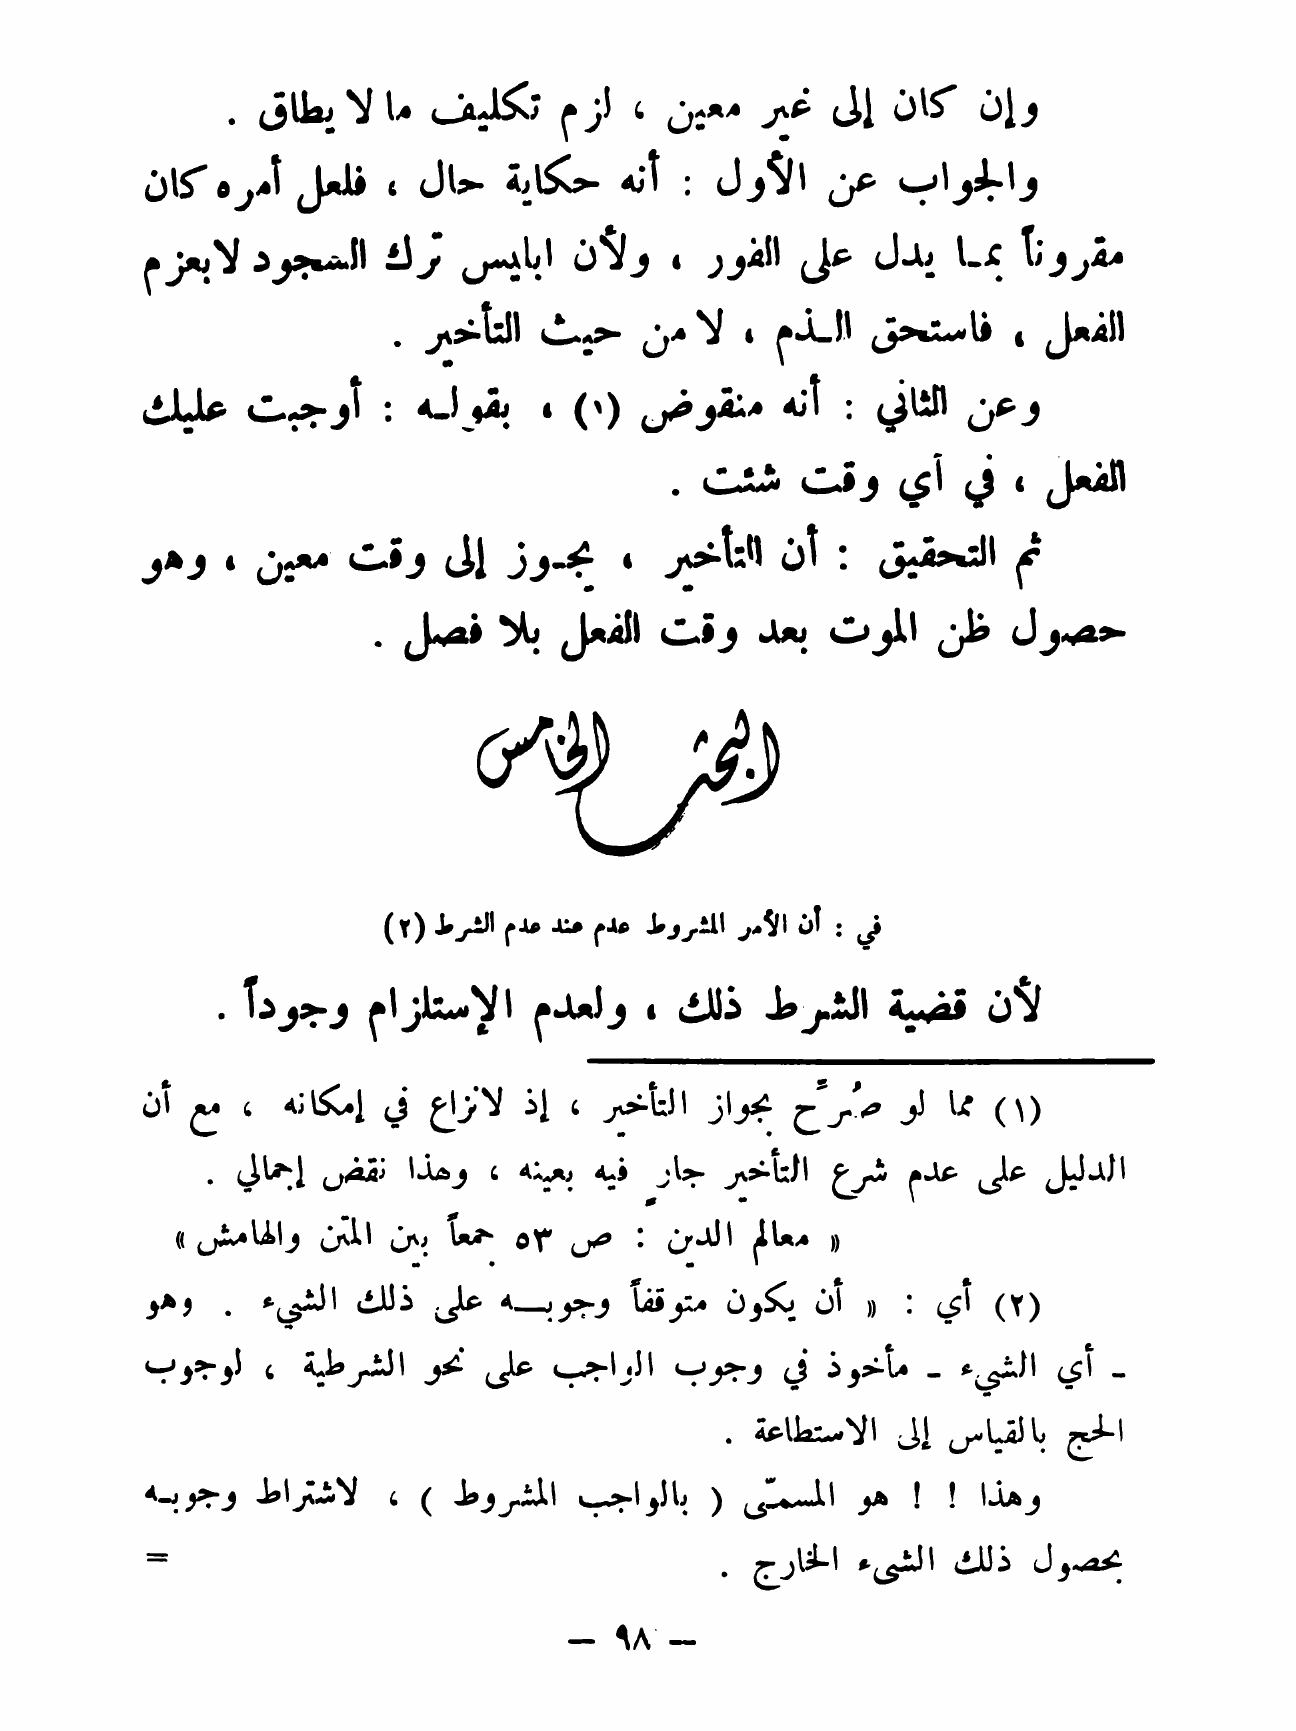 وإن كان إلى غير معين ، لزم تكليف ما لا يطاق .
والجواب عن الأول : أنه حكاية حال ، فلعل أمره كان
مقروناً بما يدل على الفور ، ولأن ابليس ترك السجود لا بعزم
الفعل ، فاستحق الذم ، لا من حيث التأخير .
وعن الثاني : أنه منقوض (١) ، بقوله : أوجبت عليك
الفعل ، في أي وقت شئت .
ثم التحقيق : أن التأخير ، يجوز إلى وقت معين ، وهو
حصول ظن الموت بعد وقت الفعل بلا فصل .
البحث الخامس
في : أن الأمر المشروط عدم عند عدم الشرط (٢)
لأن قضية الشرط ذلك ، ولعدم الإستلزام وجوداً .
(١) مما لو صُرِّح بجواز التأخير ، إذ لا نزاع في إمكانه ، مع أن
الدليل على عدم شرع التأخير جارٍ فيه بعينه ، وهذا نقض إجمالي .
« معالم الدين : ص ٥٣ جمعاً بين المتن والهامش »
(٢) أي : « أن يكون متوقفاً وجوبه على ذلك الشيء . وهو
- أي الشيء - مأخوذ في وجوب الواجب على نحو الشرطية ، لوجوب
الحج بالقياس إلى الاستطاعة .
وهذا ! ! هو المسمّى ( بالواجب المشروط ) ، لاشتراط وجوبه
بحصول ذلك الشيء الخارج . =
— ٩٨ —